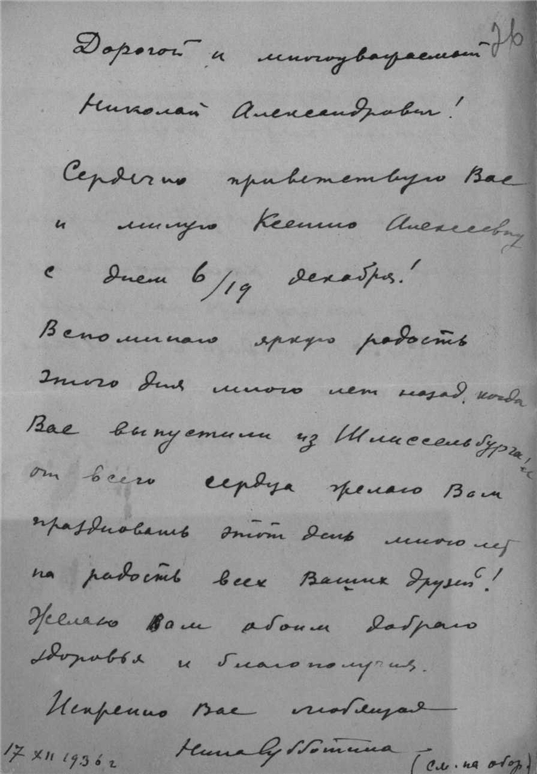 26
Дорогой и многоуважаемый
Николай Александрович!
Сердечно приветствую Вас
и милую Ксению Алексеевну
с днем 6/19 декабря!
Вспоминаю яркую радость
этого дня много лет назад, когда
Вас выпустили из Шлиссельбурга! и
от всего сердца желаю Вам
праздновать этот день много лет
на радость всех Ваших друзей!
Желаю Вам обоим добраго
здоровья и благополучия.
Искренно Вас любящая
Нина Субботина
17 XII 1936 г (см. на обор.)